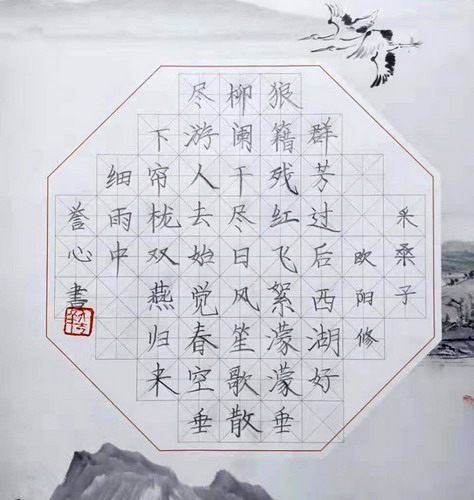 采桑子
欧阳修
群芳过后西湖好
狼籍残红飞絮濛濛垂
柳阑干尽日风笙歌散
尽游人去始觉春空垂
下帘栊双燕归来
细雨中
誉心書